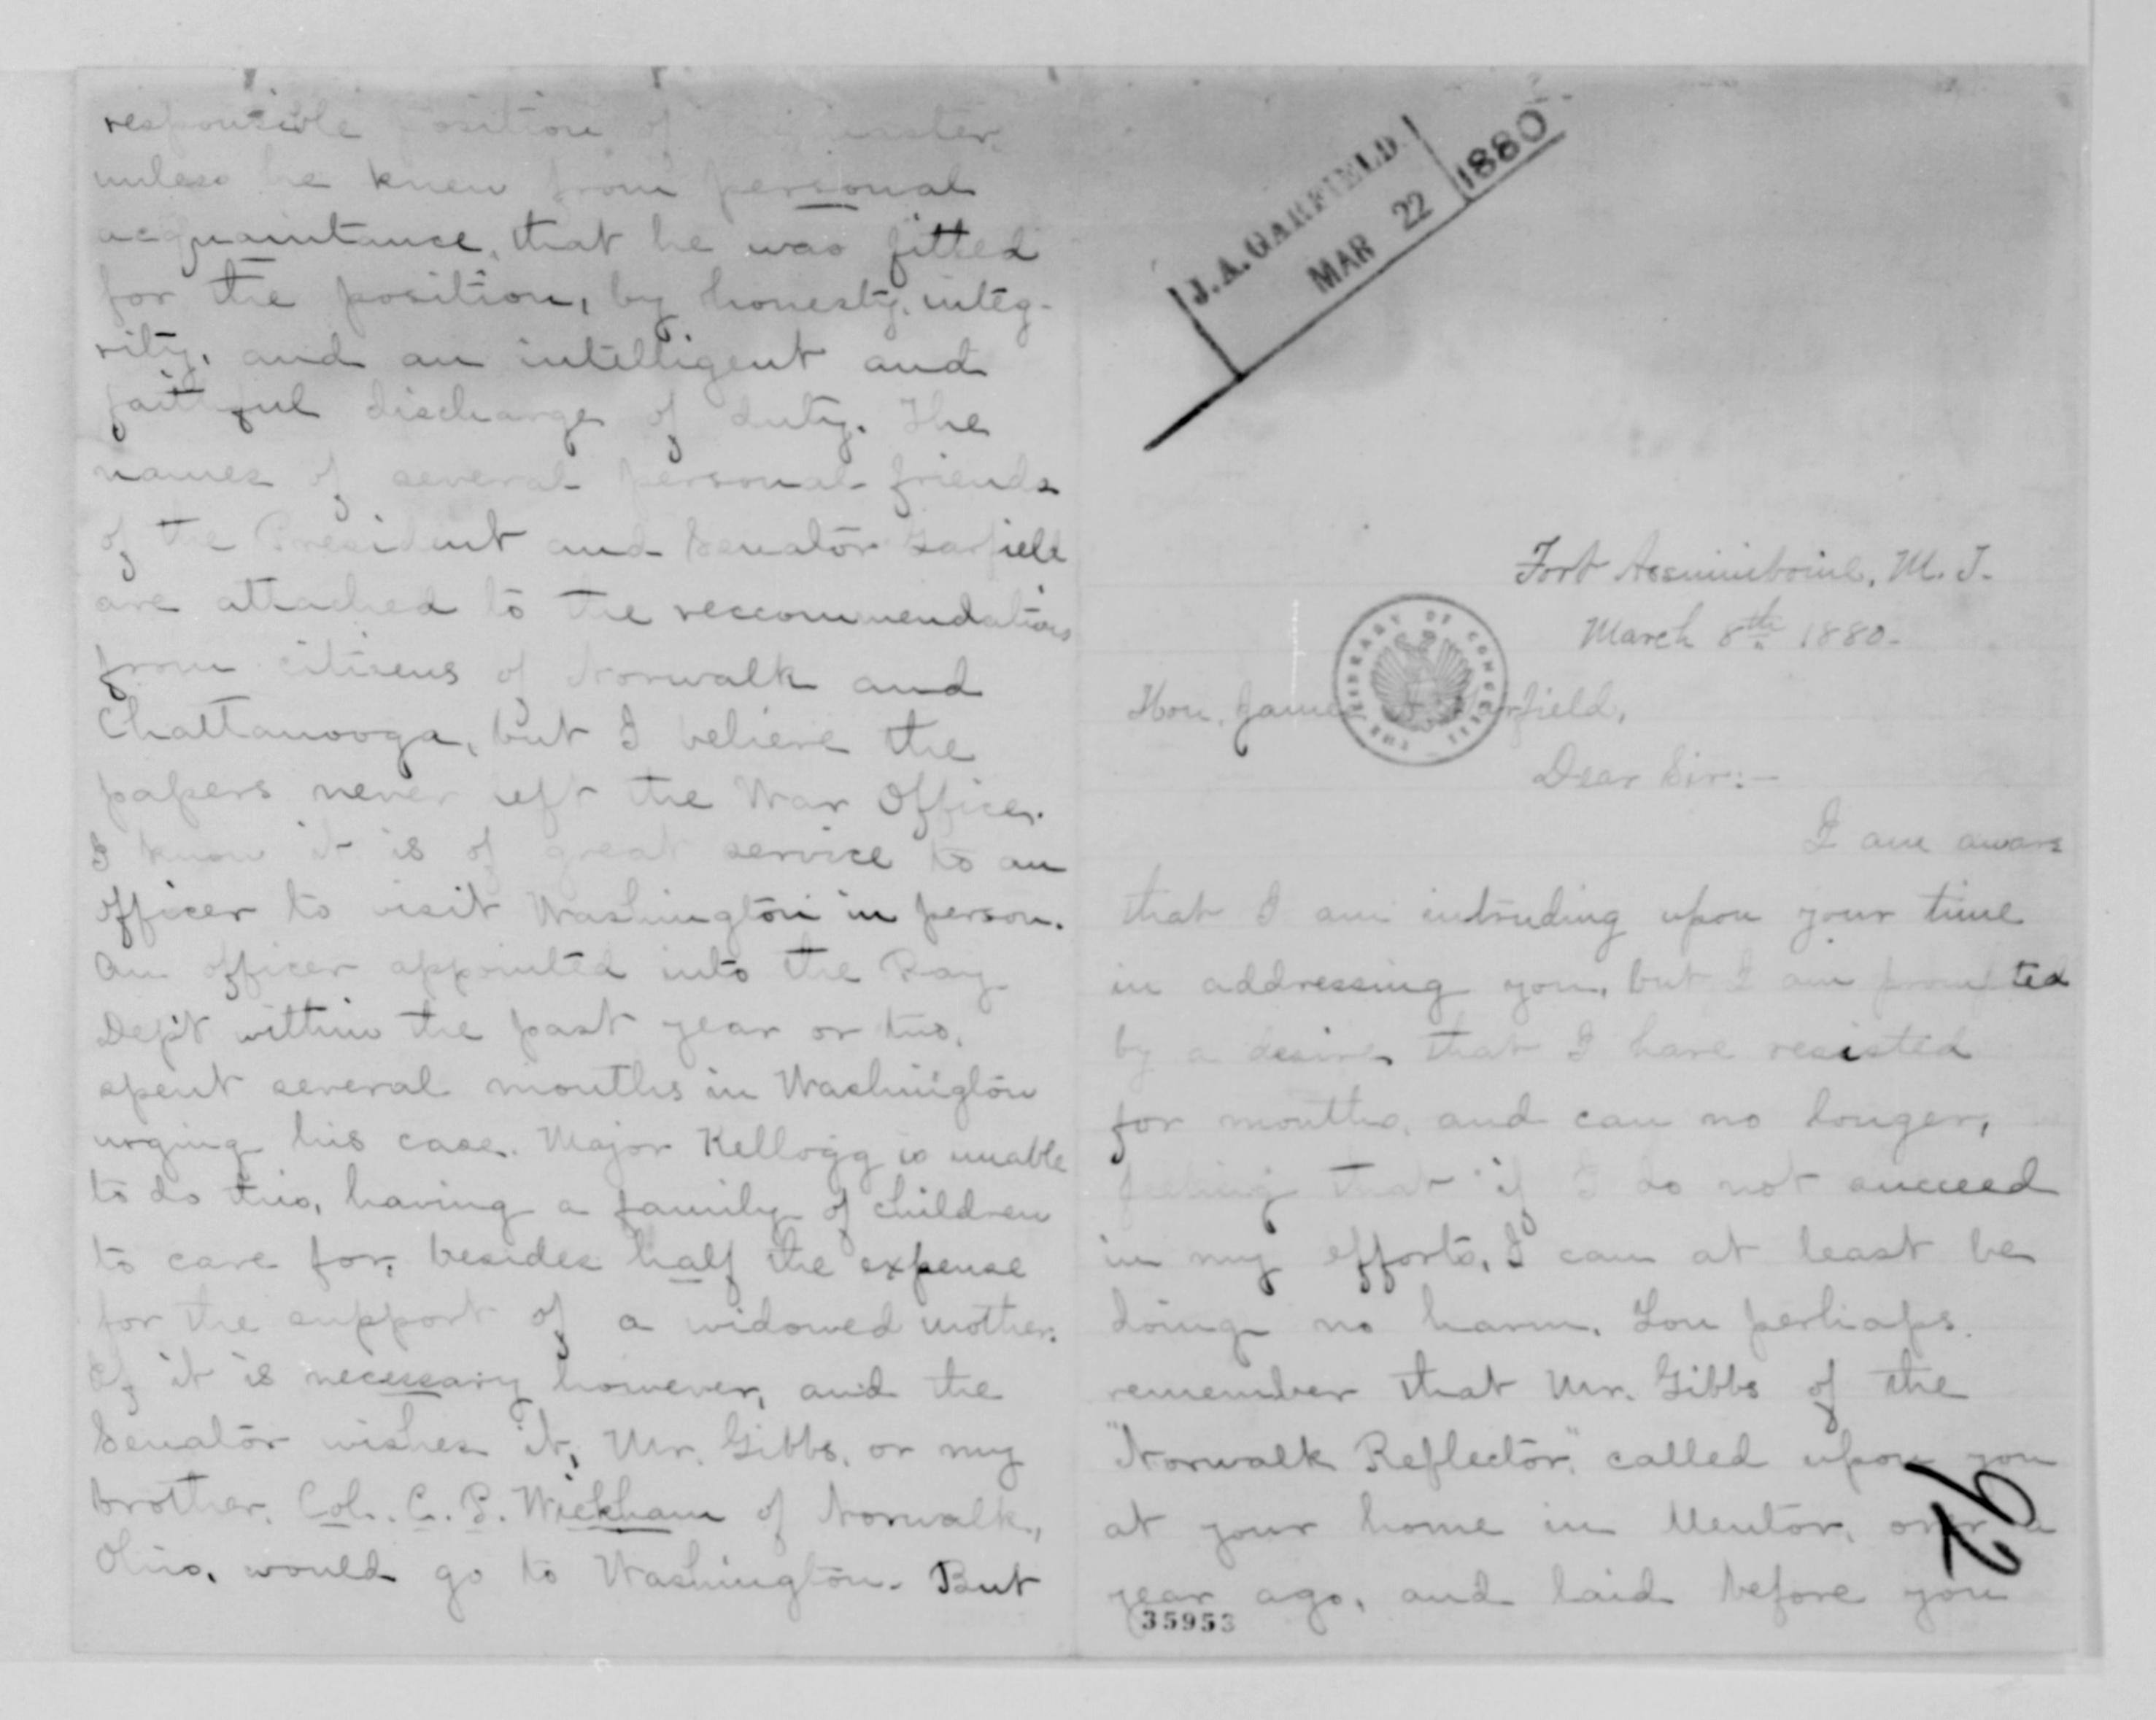 responsible position of Paymaster
unless he knew from personal
acquaintance, that he was fitted
for the position, by honesty, integ-
rity, and an intelligent and
faithful discharge of duty. The
names of several personal friends
of the President and Senator Garfield
are attached to the reccommendations
from citizens of Norwalk and
Chattanooga, but I believe the
papers never left the War Office.
I know it is of great service to an
officer to visit Washington in person.
An officer appointed into the Pay
Dep't within the past year or two,
spent several months in Washington
urging his case. Major Kellogg is unable
to do this, having a family of children
to care for, besides half the expense
for the support of a widowed mother.
If it is necessary however, and the
Senator wishes it, Mr. Gibbs, or my
brother, Col. C. P. Wickham of Norwalk,
Ohio, would go to Washington. But
J. A. GARFIELD
MAR 22 1880
Fort Assinniboine, M. T.
March 8th 1880.
Hon. James A. Garfield,
THE LIBRARY OF CONGRESS
Dear Sir:—
I am aware
that I am intruding upon your time
in addressing you, but I am prompted
by a desire that I have resisted
for months, and can no longer,
feeling that if I do not succeed
in my efforts, I can at least be
doing no harm. You perhaps
remember that Mr. Gibbs of the
"Norwalk Reflector," called upon you
at your home in Mentor, over a
year ago, and laid before you
35953
92